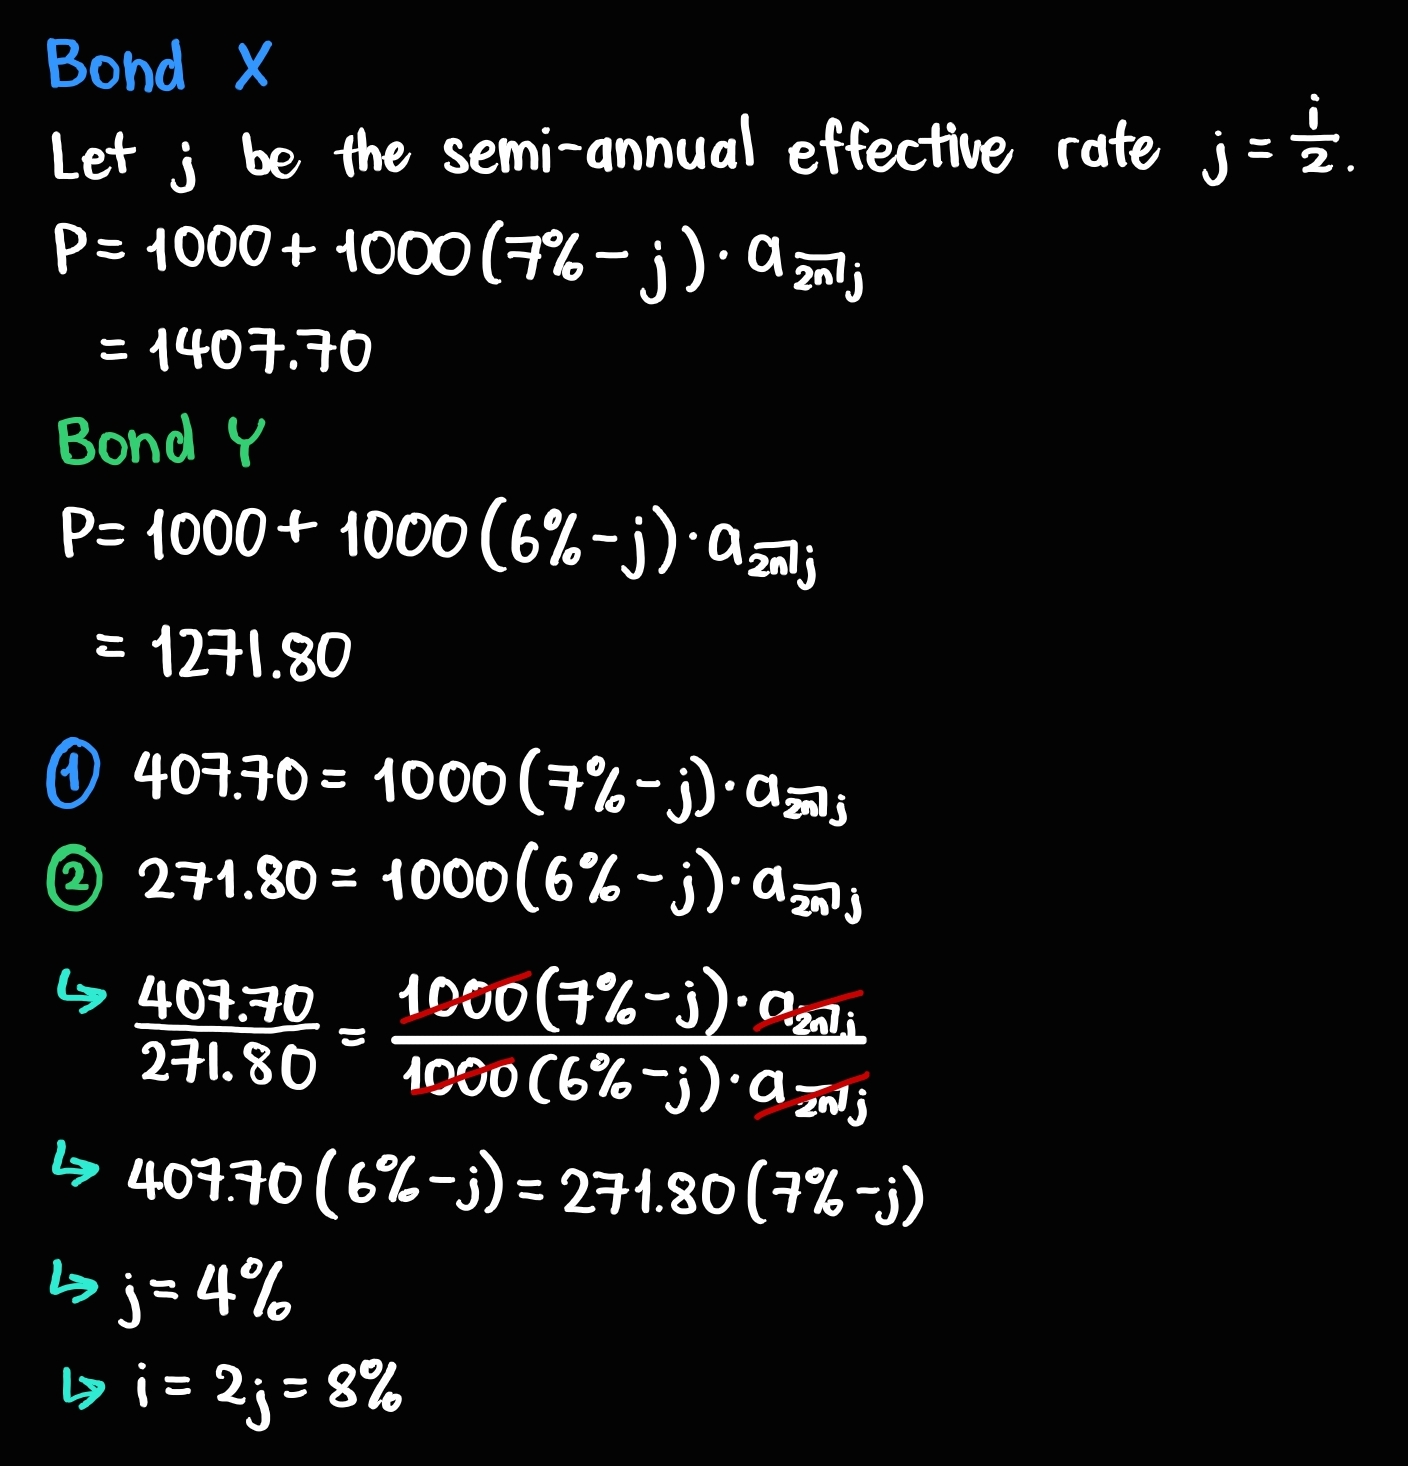 Bond X
Let j be the semi-annual effective rate j = i/2.
P = 1000 + 1000(7% - j) · a_{2n⌉j}
= 1407.70
Bond Y
P = 1000 + 1000(6% - j) · a_{2n⌉j}
= 1271.80
① 407.70 = 1000(7% - j) · a_{2n⌉j}
② 271.80 = 1000(6% - j) · a_{2n⌉j}
↳ 407.70/271.80 = 1000(7% - j) · a_{2n⌉j} / 1000(6% - j) · a_{2n⌉j}
↳ 407.70(6% - j) = 271.80(7% - j)
↳ j = 4%
↳ i = 2j = 8%